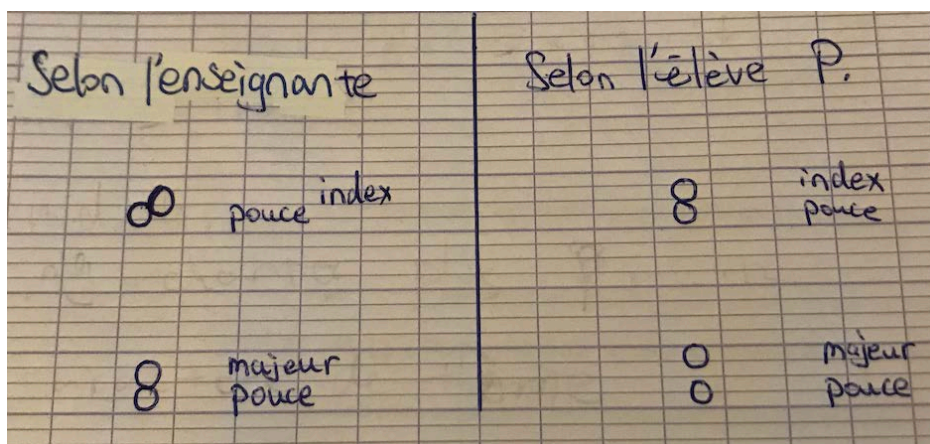 Selon l'enseignante
pouce index
majeur
pouce
Selon l'élève P.
index
pouce
majeur
pouce